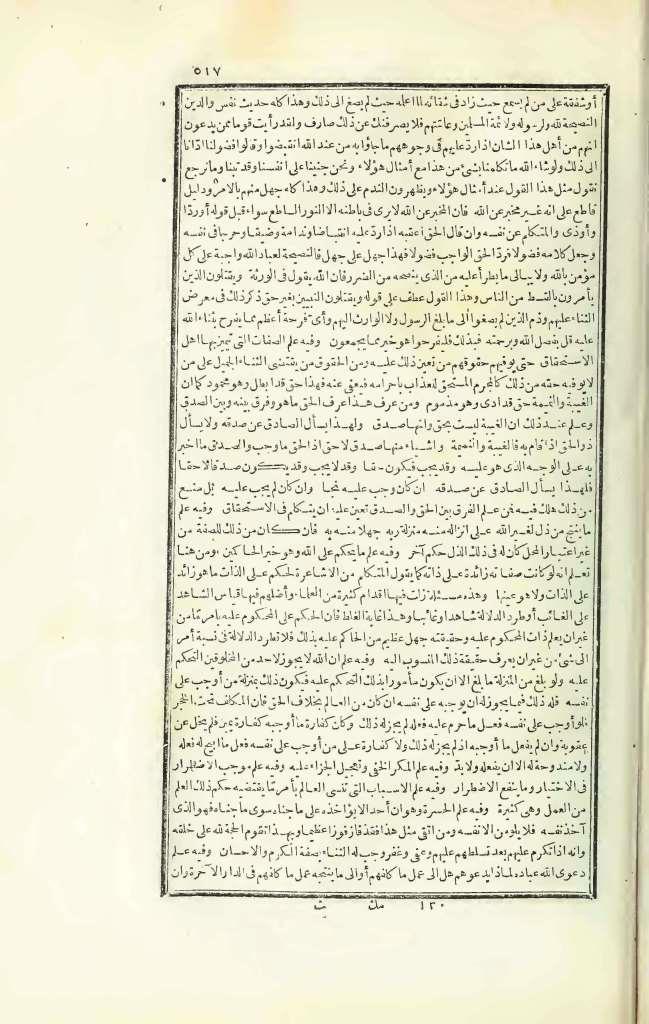 ٥١٧
أوشفقة على من لم يسمع حيث زاد فى شقائه لما أعلمه حيث لم يصغ الى ذلك وهذا كله حديث نفس والدين
النصيحة لله ولرسوله ولائمة المسلمين وعامتهم فلا يصرفنك عن ذلك صارف ولقد رأيت قوما ممن يدعون
انهم من أهل هذا الشان اذا رد عليهم فى وجوههم ما جاؤا به من عند الله انقبضوا وقالوا فضولنا أدانا
الى ذلك ولو شاء الله ما تكلمنا بشئ من هذا مع أمثال هؤلاء ونحن جنينا على أنفسنا وقد تبنا وما نرجع
نقول مثل هذا القول عند أمثال هؤلاء ويظهرون الندم على ذلك وهذا كله جهل منهم بالامر ودليل
قاطع على انه غير مخبر عن الله فان المخبر عن الله لا يرى فى باطنه الا النور الساطع سواء قبل قوله أورد أ
وأوذى والمتكلم عن نفسه وان قال الحق أعقبه اذا رد عليه انقباضا وندامة وضيقا وحرجا فى نفسه
وجعل كلامه فضولا فرد الحق الواجب فضولا فهذا جهل على جهل فالنصيحة لعباد الله واجبة على كل
مؤمن بالله ولا يبالى ما يطرأ عليه من الذى ينصحه من الضرر فان الله يقول فى الورثة ويقتلون الذين
يأمرون بالقسط من الناس وهذا القول عطف على قوله ويقتلون النبيين بغير حق ذكر ذلك فى معرض
الثناء عليهم وذم الذين لم يصغوا الى ما بلغ الرسول ولا الوارث اليهم وأى فرحة أعظم مما يفرح بثناء الله
عليه قل بفضل الله وبرحمته فبذلك فليفرحوا هو خير مما يجمعون وفيه علم الصفات التى تميز بها أهل
الاستحقاق حتى يوفيهم حقوقهم من تعين ذلك عليه ومن الحقوق من يقتضى الثناء الجميل على من
لا يوفيه حقه من ذلك كالمجرم المستحق للعذاب باجرامه فيعفى عنه فهذا حق قد أبطل وهو محمود كما ان
الغيبة والنميمة حق قد ادى وهو مذموم ومن عرف هذا عرف الحق ما هو وفرق بينه وبين الصدق
وعلم عند ذلك ان الغيبة ليست بحق وانها صدق ولهذا يسأل الصادق عن صدقه ولا يسأل
ذو الحق اذا قام به فالغيبة والنميمة وأشباه منها صدق لا حق اذ الحق ما وجب والصدق ما أخبر
به على الوجه الذى هو عليه وقد يجب فيكون حقا وقد لا يجب وقد يكون صدقا لا حقا
فلهذا يسأل الصادق عن صدقه ان كان وجب عليه نجا وان كان لم يجب عليه بل منع
من ذلك هلك فيه فمن علم الفرق بين الحق والصدق تعين عليه ان يتكلم فى الاستحقاق وفيه علم
ما ينتج من ذل لغير الله على انزاله منه منزلة ربه جهلا منه به فان كان من ذلك للصفة من
غير اعتبار المحل كان له فى ذلك الذل حكم آخر وفيه علم ما يتحكم على الله وهو خير الحاكمين ومن هنا
تعلم انه لو كانت صفاته زائدة على ذاته كما يقول المتكلم من الاشاعرة لحكم على الذات ما هو زائد
على الذات ولا هو عينها وهذه مسئلة زلت فيها أقدام كثيرة من العلماء وأضلهم فيها قياس الشاهد
على الغائب أو طرد الدلالة شاهدا وغائبا وهذا غاية الغلط فان الحكم على المحكوم عليه بامر ما من
غير ان يعلم ذات المحكوم عليه وحقيقته جهل عظيم من الحاكم عليه بذلك فلا تطرد الدلالة فى نسبة أمر
الى شئ من غير ان يعرف حقيقة ذلك المنسوب اليه وفيه علم ان الله لا يجوز لاحد من المخلوقين التحكم
عليه ولو بلغ من المنزلة ما بلغ الا ان يكون مأمورا بذلك التحكم عليه فيكون ذلك بمنزلة من أوجب على
نفسه فله ذلك فيما يجوز له ان يوجبه على نفسه ان كان من العالم بخلاف الحق فان المكلف تحت الحجر
فلو أوجب على نفسه فعل ما حرم عليه فعله لم يجز له ذلك وكان كفارة ما أوجبه كفارة يمين فلم يخل عن
عقوبة وان لم يفعل ما أوجبه اذ لم يجز له ذلك ولا كفارة على من أوجب على نفسه فعل ما ابيح له فعله
ولا مندوحة له الا ان يفعله ولا بد وفيه علم المكر الخفى وتعجيل الجزاء عليه وفيه علم موجب الاضطرار
فى الاختيار وما ينفع الاضطرار وفيه علم الاسباب التى تنسى العالم بأمر ما يقتضيه حكم ذلك العلم
من العمل وهى كثيرة وفيه علم الحسرة وهو ان أحدا لا يؤاخذه على ما جناه سوى ما جناه فهو الذى
آخذ نفسه فلا يلومن الا نفسه ومن اتقى مثل هذا فقد فاز فوزا عظيما وبهذا تقوم الحجة لله على خلقه
وانه اذا تكرم عليهم بعد تسلطهم عليهم وعفى وغفر وجب له الثناء بصفة الكرم والاحسان وفيه علم
دعوى الله عباده لماذا يدعوهم هل الى عمل ما كلفهم أو الى ما ينتجه عمل ما كلفهم فى الدار الآخرة وان
١٣٠ مك ت